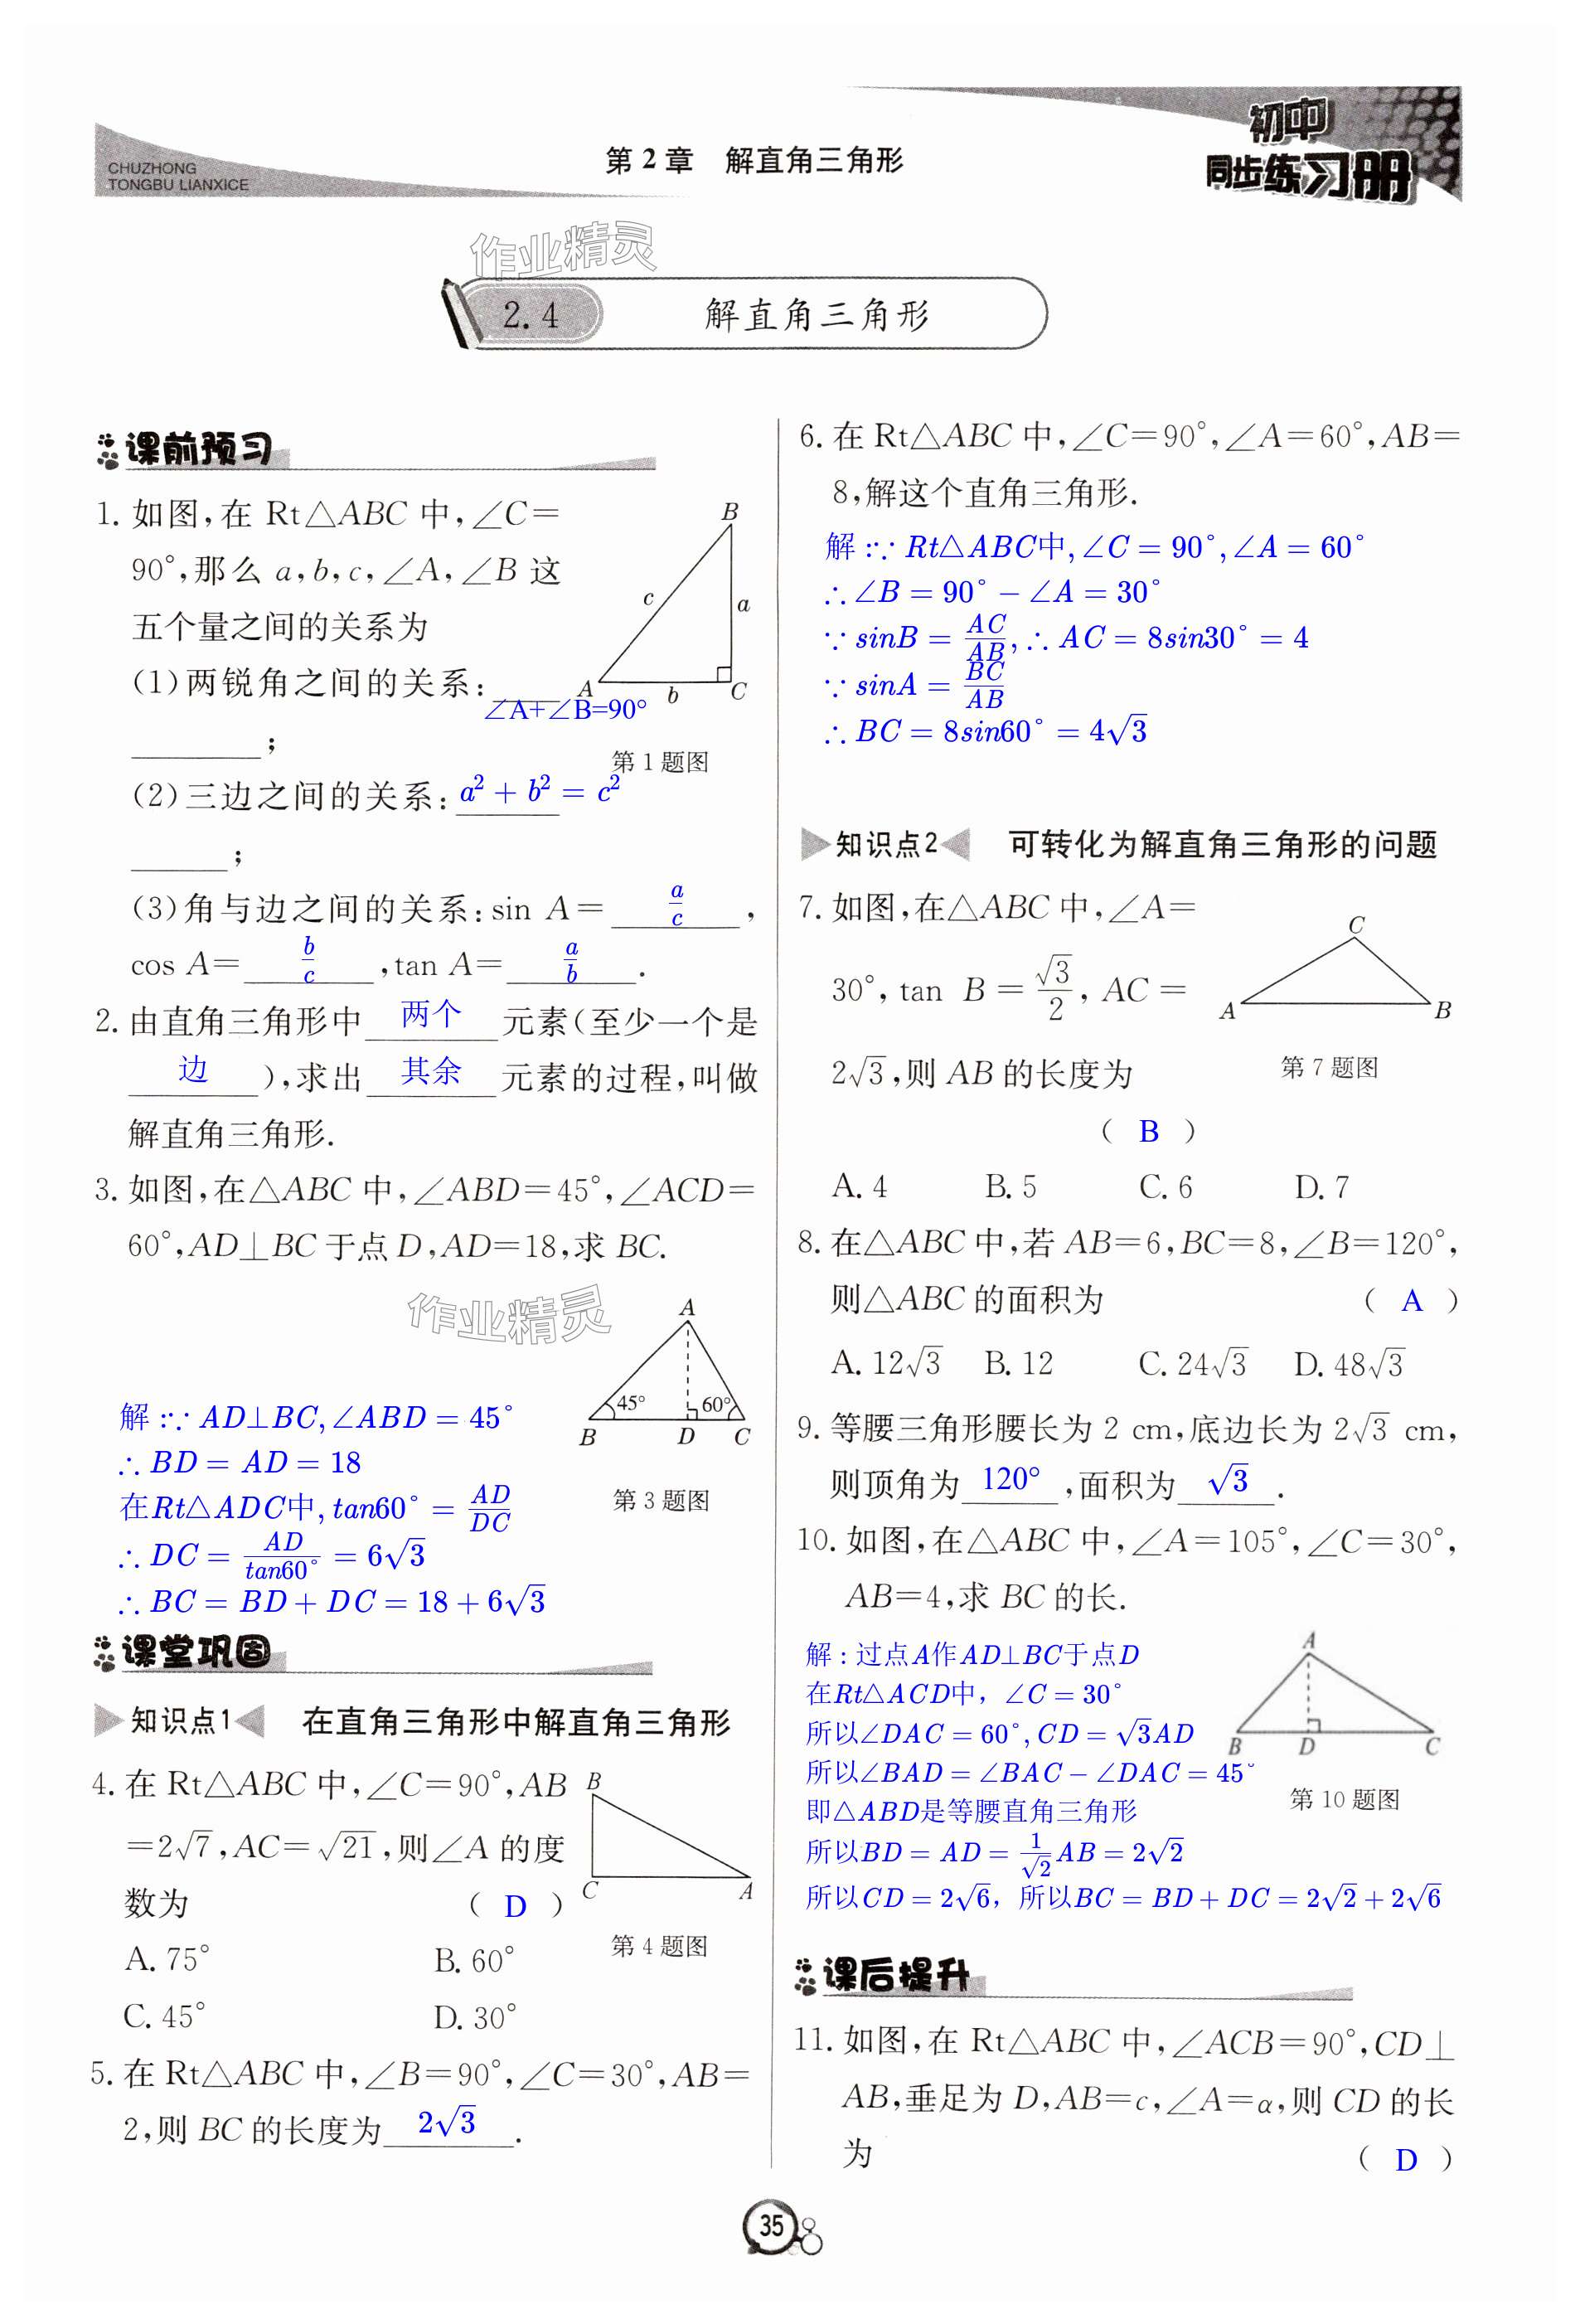 CHUZHONG
TONGBU LIANXICE
第2章 解直角三角形
初中
同步练习册
作业精灵
2.4 解直角三角形
课前预习
1. 如图,在 Rt△ABC 中,∠C=
90°,那么 a,b,c,∠A,∠B 这
五个量之间的关系为
(1)两锐角之间的关系:
∠A+∠B=90°
;
B
c
a
A
b
C
第1题图
(2)三边之间的关系: a²+b²=c²
;
(3)角与边之间的关系:sin A= a/c ,
cos A= b/c ,tan A= a/b .
2. 由直角三角形中 两个 元素(至少一个是
边 ),求出 其余 元素的过程,叫做
解直角三角形.
3. 如图,在△ABC 中,∠ABD=45°,∠ACD=
60°,AD⊥BC 于点 D,AD=18,求 BC.
作业精灵
A
45°
60°
B
D
C
第3题图
解:∵ AD⊥BC,∠ABD=45°
∴ BD=AD=18
在Rt△ADC中,tan60°=AD/DC
∴ DC=AD/tan60°=6√3
∴ BC=BD+DC=18+6√3
课堂巩固
知识点1 在直角三角形中解直角三角形
4. 在 Rt△ABC 中,∠C=90°,AB
=2√7,AC=√21,则∠A 的度
数为 ( D )
B
C
A
第4题图
A. 75° B. 60°
C. 45° D. 30°
5. 在 Rt△ABC 中,∠B=90°,∠C=30°,AB=
2,则 BC 的长度为 2√3 .
6. 在 Rt△ABC 中,∠C=90°,∠A=60°,AB=
8,解这个直角三角形.
解:∵ Rt△ABC中,∠C=90°,∠A=60°
∴∠B=90°-∠A=30°
∵ sinB=AC/AB,∴ AC=8sin30°=4
∵ sinA=BC/AB
∴ BC=8sin60°=4√3
知识点2 可转化为解直角三角形的问题
7. 如图,在△ABC 中,∠A=
30°, tan B=√3/2, AC=
2√3,则 AB 的长度为
( B )
C
A
B
第7题图
A. 4 B. 5 C. 6 D. 7
8. 在△ABC 中,若 AB=6,BC=8,∠B=120°,
则△ABC 的面积为 ( A )
A. 12√3 B. 12 C. 24√3 D. 48√3
9. 等腰三角形腰长为 2 cm,底边长为 2√3 cm,
则顶角为 120° ,面积为 √3 .
10. 如图,在△ABC 中,∠A=105°,∠C=30°,
AB=4,求 BC 的长.
解:过点A作AD⊥BC于点D
在Rt△ACD中,∠C=30°
所以∠DAC=60°,CD=√3AD
所以∠BAD=∠BAC-∠DAC=45°
即△ABD是等腰直角三角形
所以BD=AD=1/√2 AB=2√2
所以CD=2√6,所以BC=BD+DC=2√2+2√6
A
B
D
C
第10题图
课后提升
11. 如图,在 Rt△ABC 中,∠ACB=90°,CD⊥
AB,垂足为 D,AB=c,∠A=α,则 CD 的长
为 ( D )
35